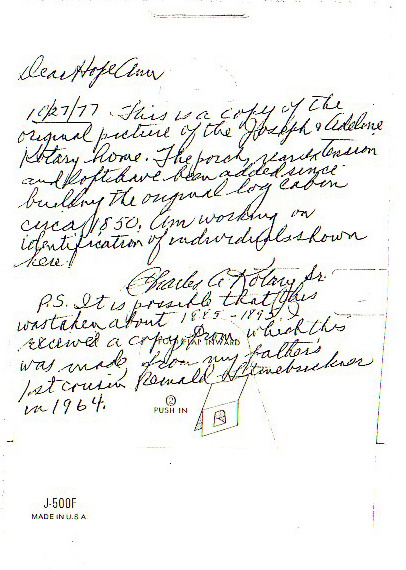 Dear Hope Ann
10/27/77. This is a copy of the
original picture of the Joseph & Adeline
Rotary home. The porch, rear extension
and loft have been added since
building the original log cabin
circa 1850. Am working on
identification of individuals shown
here.
Charles A Rotary Sr.
P.S. It is possible that this
was taken about 1885-1895. I
received a copy from which this
FLAP INWARD
was made from my father's
1st cousin
in 1964.
②
PUSH IN
J-500F
MADE IN U.S.A.